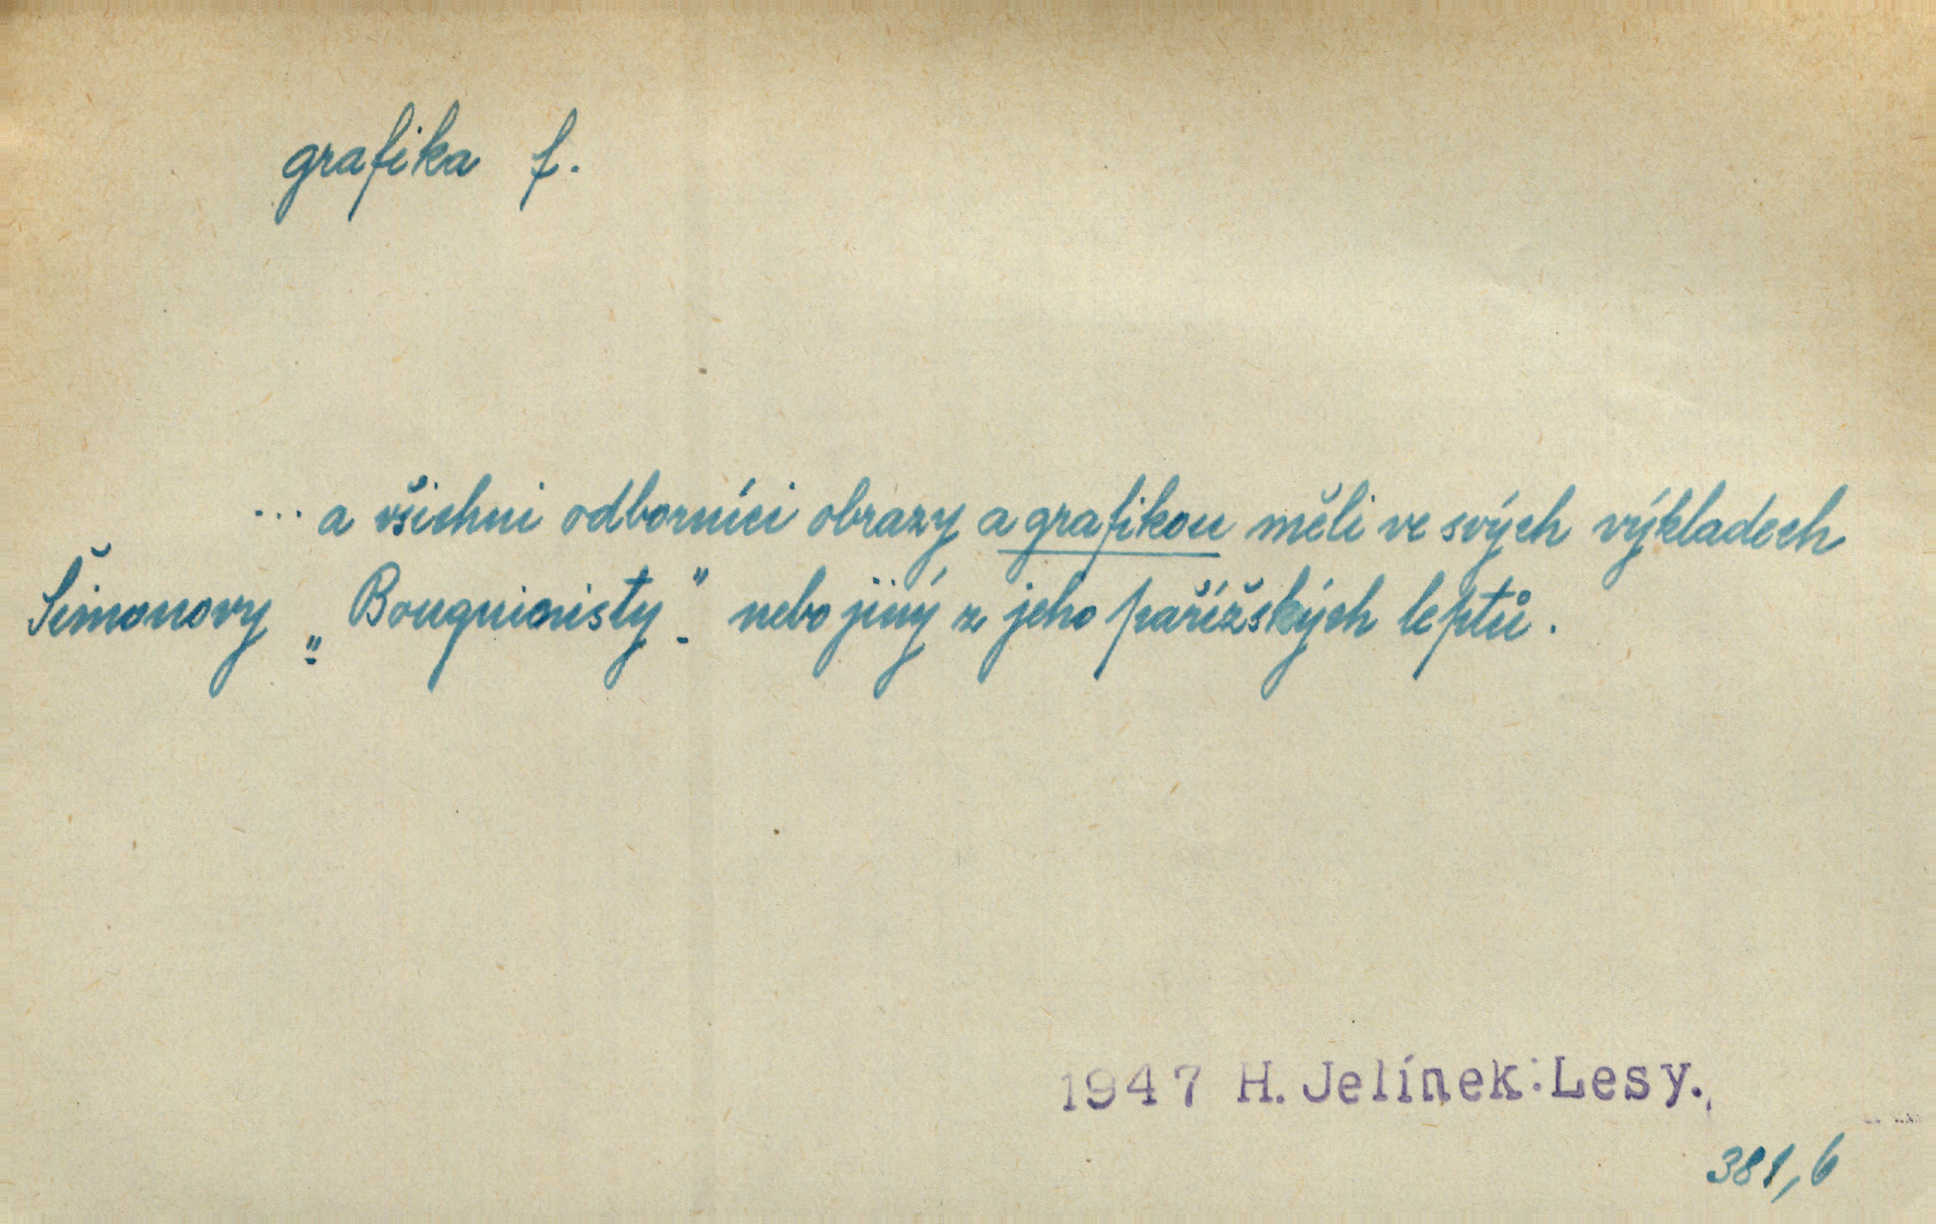 grafika f.
... a všichni odborníci obrazy a grafikou měli ve svých výkladech
Šimonovy „Bouquinisty" nebo jiný z jeho pařížských leptů.
1947 H. Jelínek: Lesy.
381,6